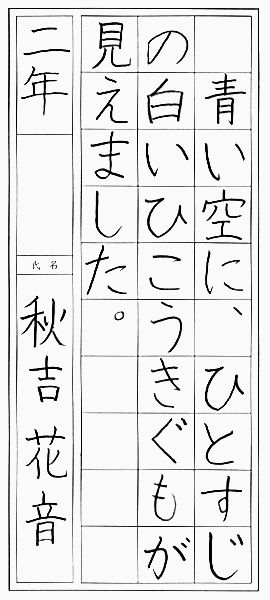 青い空に、ひとすじ
の白いひこうきぐもが
見えました。
二年
氏名
秋吉花音